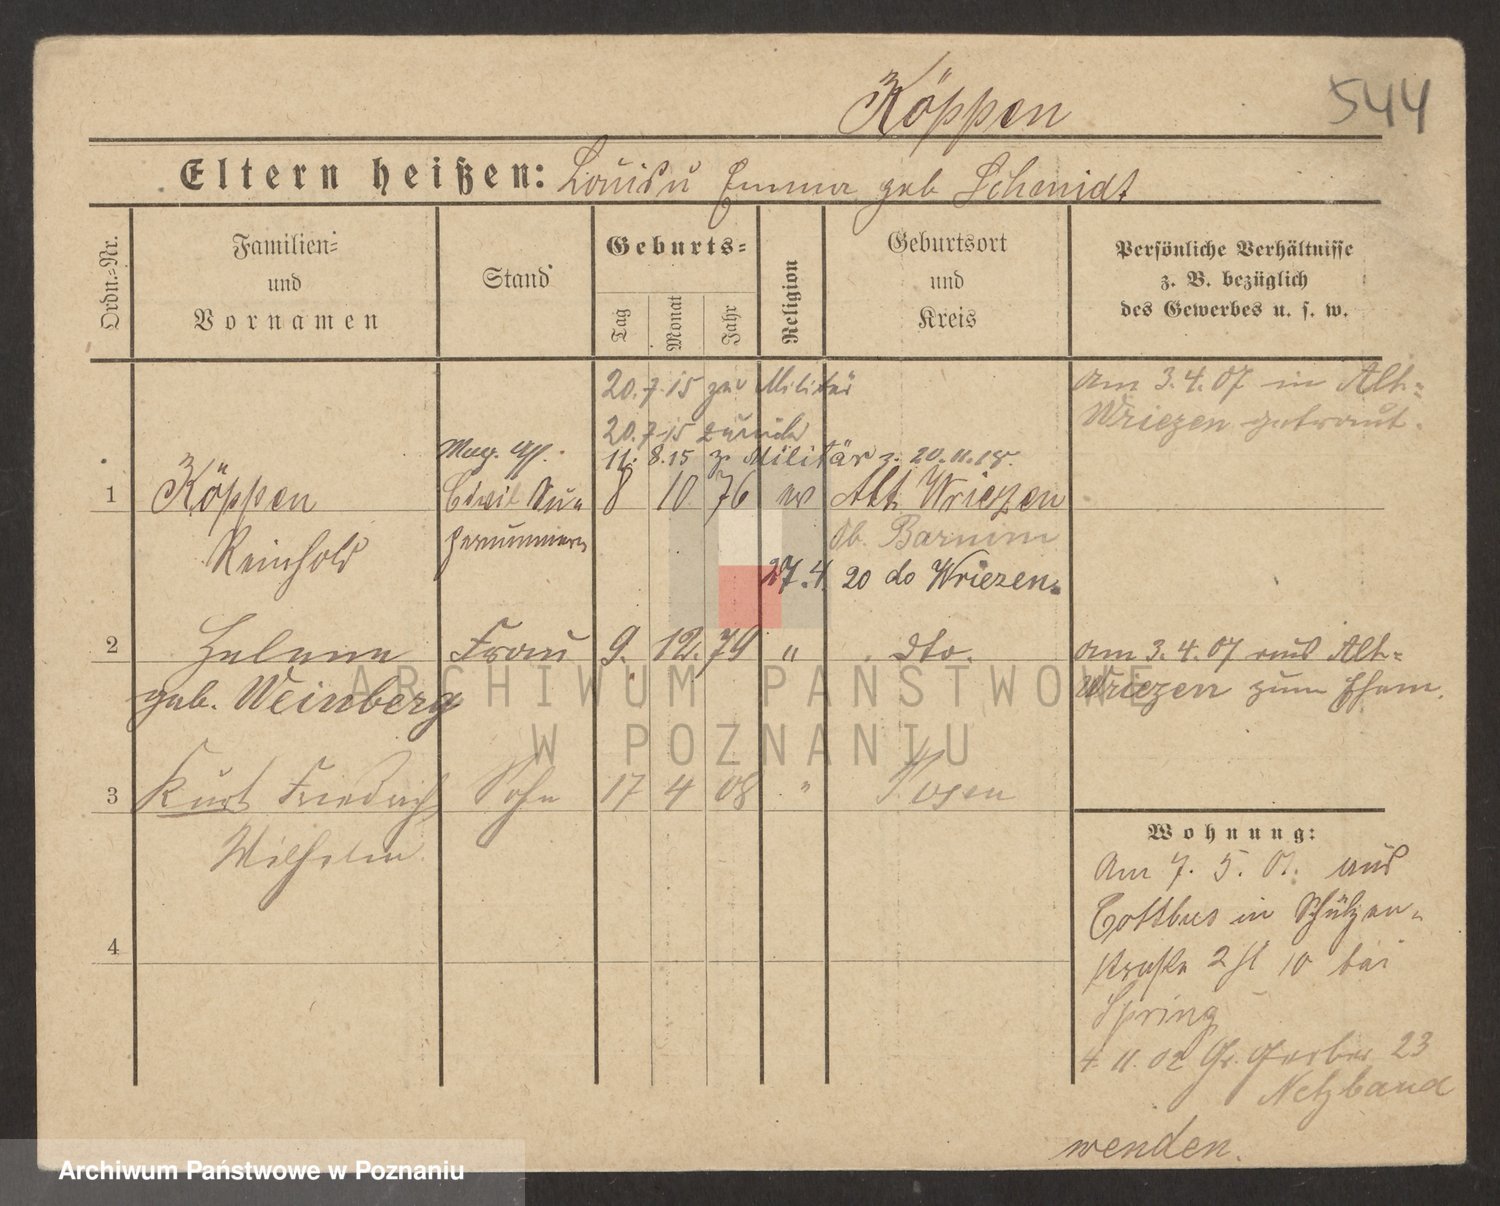 Köppen
544
Eltern heißen: Louis u Emma geb Schmidt
Ordn.=Nr.
Familien=
und
Vornamen
Stand
Geburts=
Tag
Monat
Jahr
Religion
Geburtsort
und
Kreis
Persönliche Verhältnisse
z. B. bezüglich
des Gewerbes u. s. w.
20.7.15 zur Militär
20.7.15 zurück
11. 8.15 z. Militär z. 20.11.18.
am 3.4.07 in Alt=
Wriezen getraut.
1 Köppen Civil Su= 8 10. 76 ev Alt Wriezen
Reinhold pernumerar
Ob. Barnim
27.4. 20 do Wriezen.
2 Helene Frau 9. 12. 79 " dto.
geb. Weinberg
am 3.4.07 aus Alt=
Wriezen zum Ehem.
3 Kurt Friedrich Sohn 17 4 08 " Posen
Wilhelm
4
Wohnung:
Am 7. 5. 01. aus
Cottbus in Schützen=
straße 2 H 10 bei
Spring
4.11.02 Gr. Gerber 23
Netzband
wenden.
ARCHIWUM PAŃSTWOWE
W POZNANIU
Archiwum Państwowe w Poznaniu